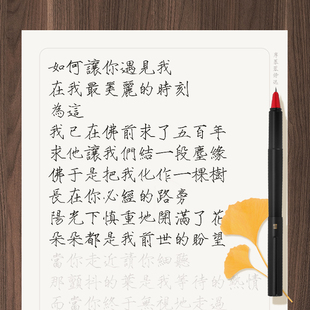 如何讓你遇見我
在我最美麗的時刻
為這
我已在佛前求了五百年
求他讓我們結一段塵緣
佛于是把我化作一棵樹
長在你必經的路旁
陽光下慎重地開滿了花
朵朵都是我前世的盼望
當你走近請你細聽
那顫抖的葉是我等待的熱情
而當你終于無視地走過